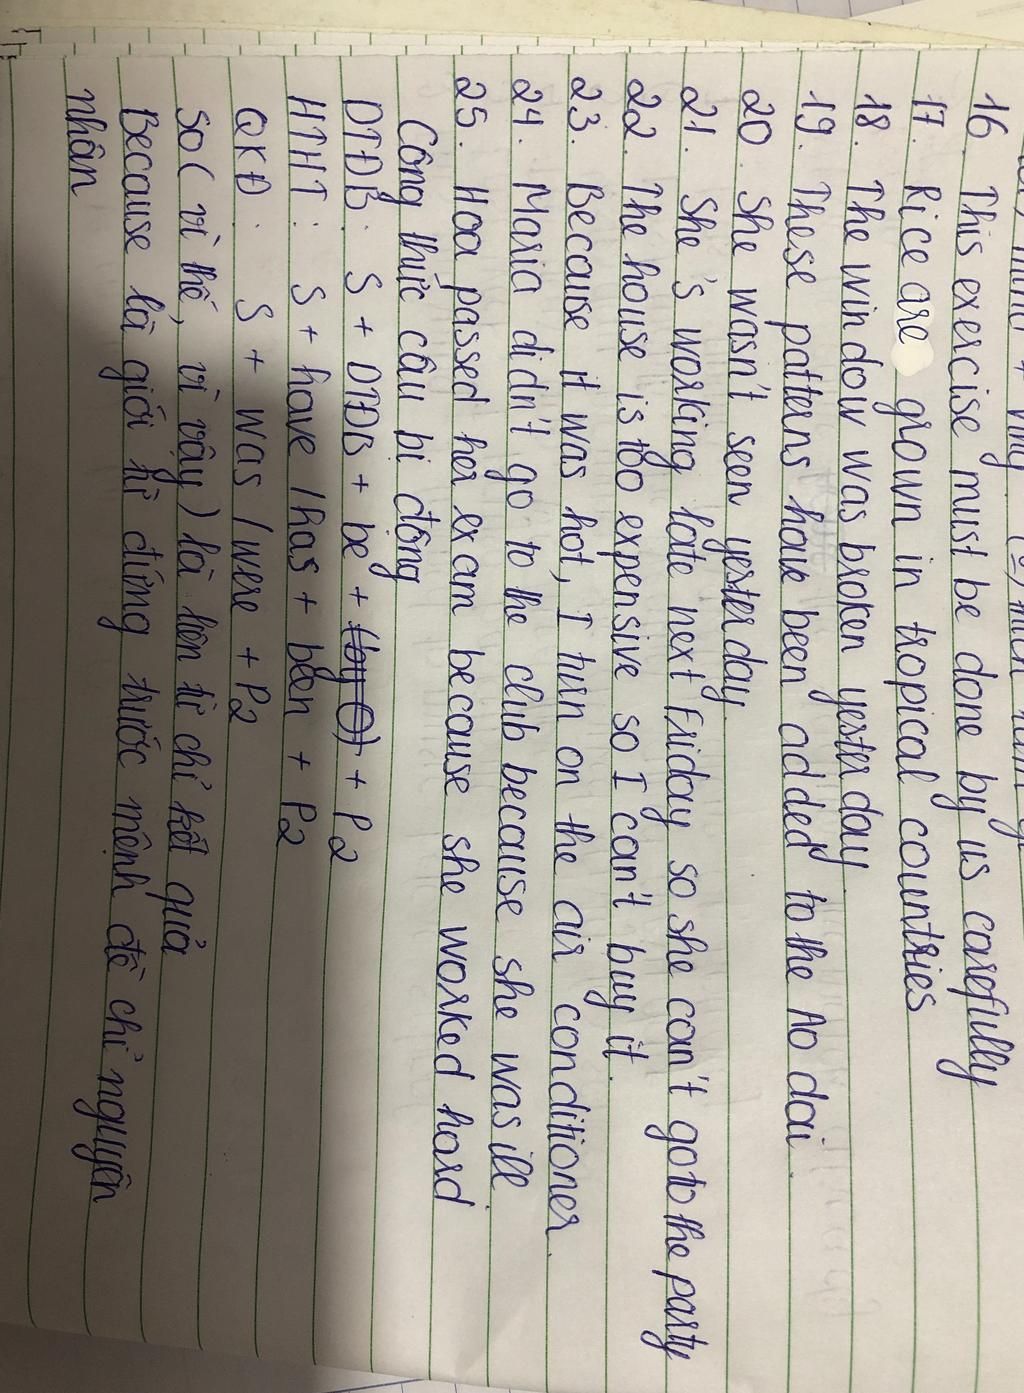 16. This exercise must be done by us carefully
17. Rice are grown in tropical countries
18. The window was broken yesterday
19. These patterns have been added to the Ao dai.
20. She wasn't seen yesterday.
21. She's working late next Friday so she can't go to the party
22. The house is too expensive so I can't buy it.
23. Because it was hot, I turn on the air conditioner.
24. Maria didn't go to the club because she was ill.
25. Hoa passed her exam because she worked hard
Công thức câu bị động
DTĐB: S + DTĐB + be + (by O) + P2
HTHT: S + have / has + been + P2
QKĐ: S + was / were + P2
So ( vì thế, vì vậy ) là liên từ chỉ kết quả
Because là giới từ đứng trước mệnh đề chỉ nguyên
nhân